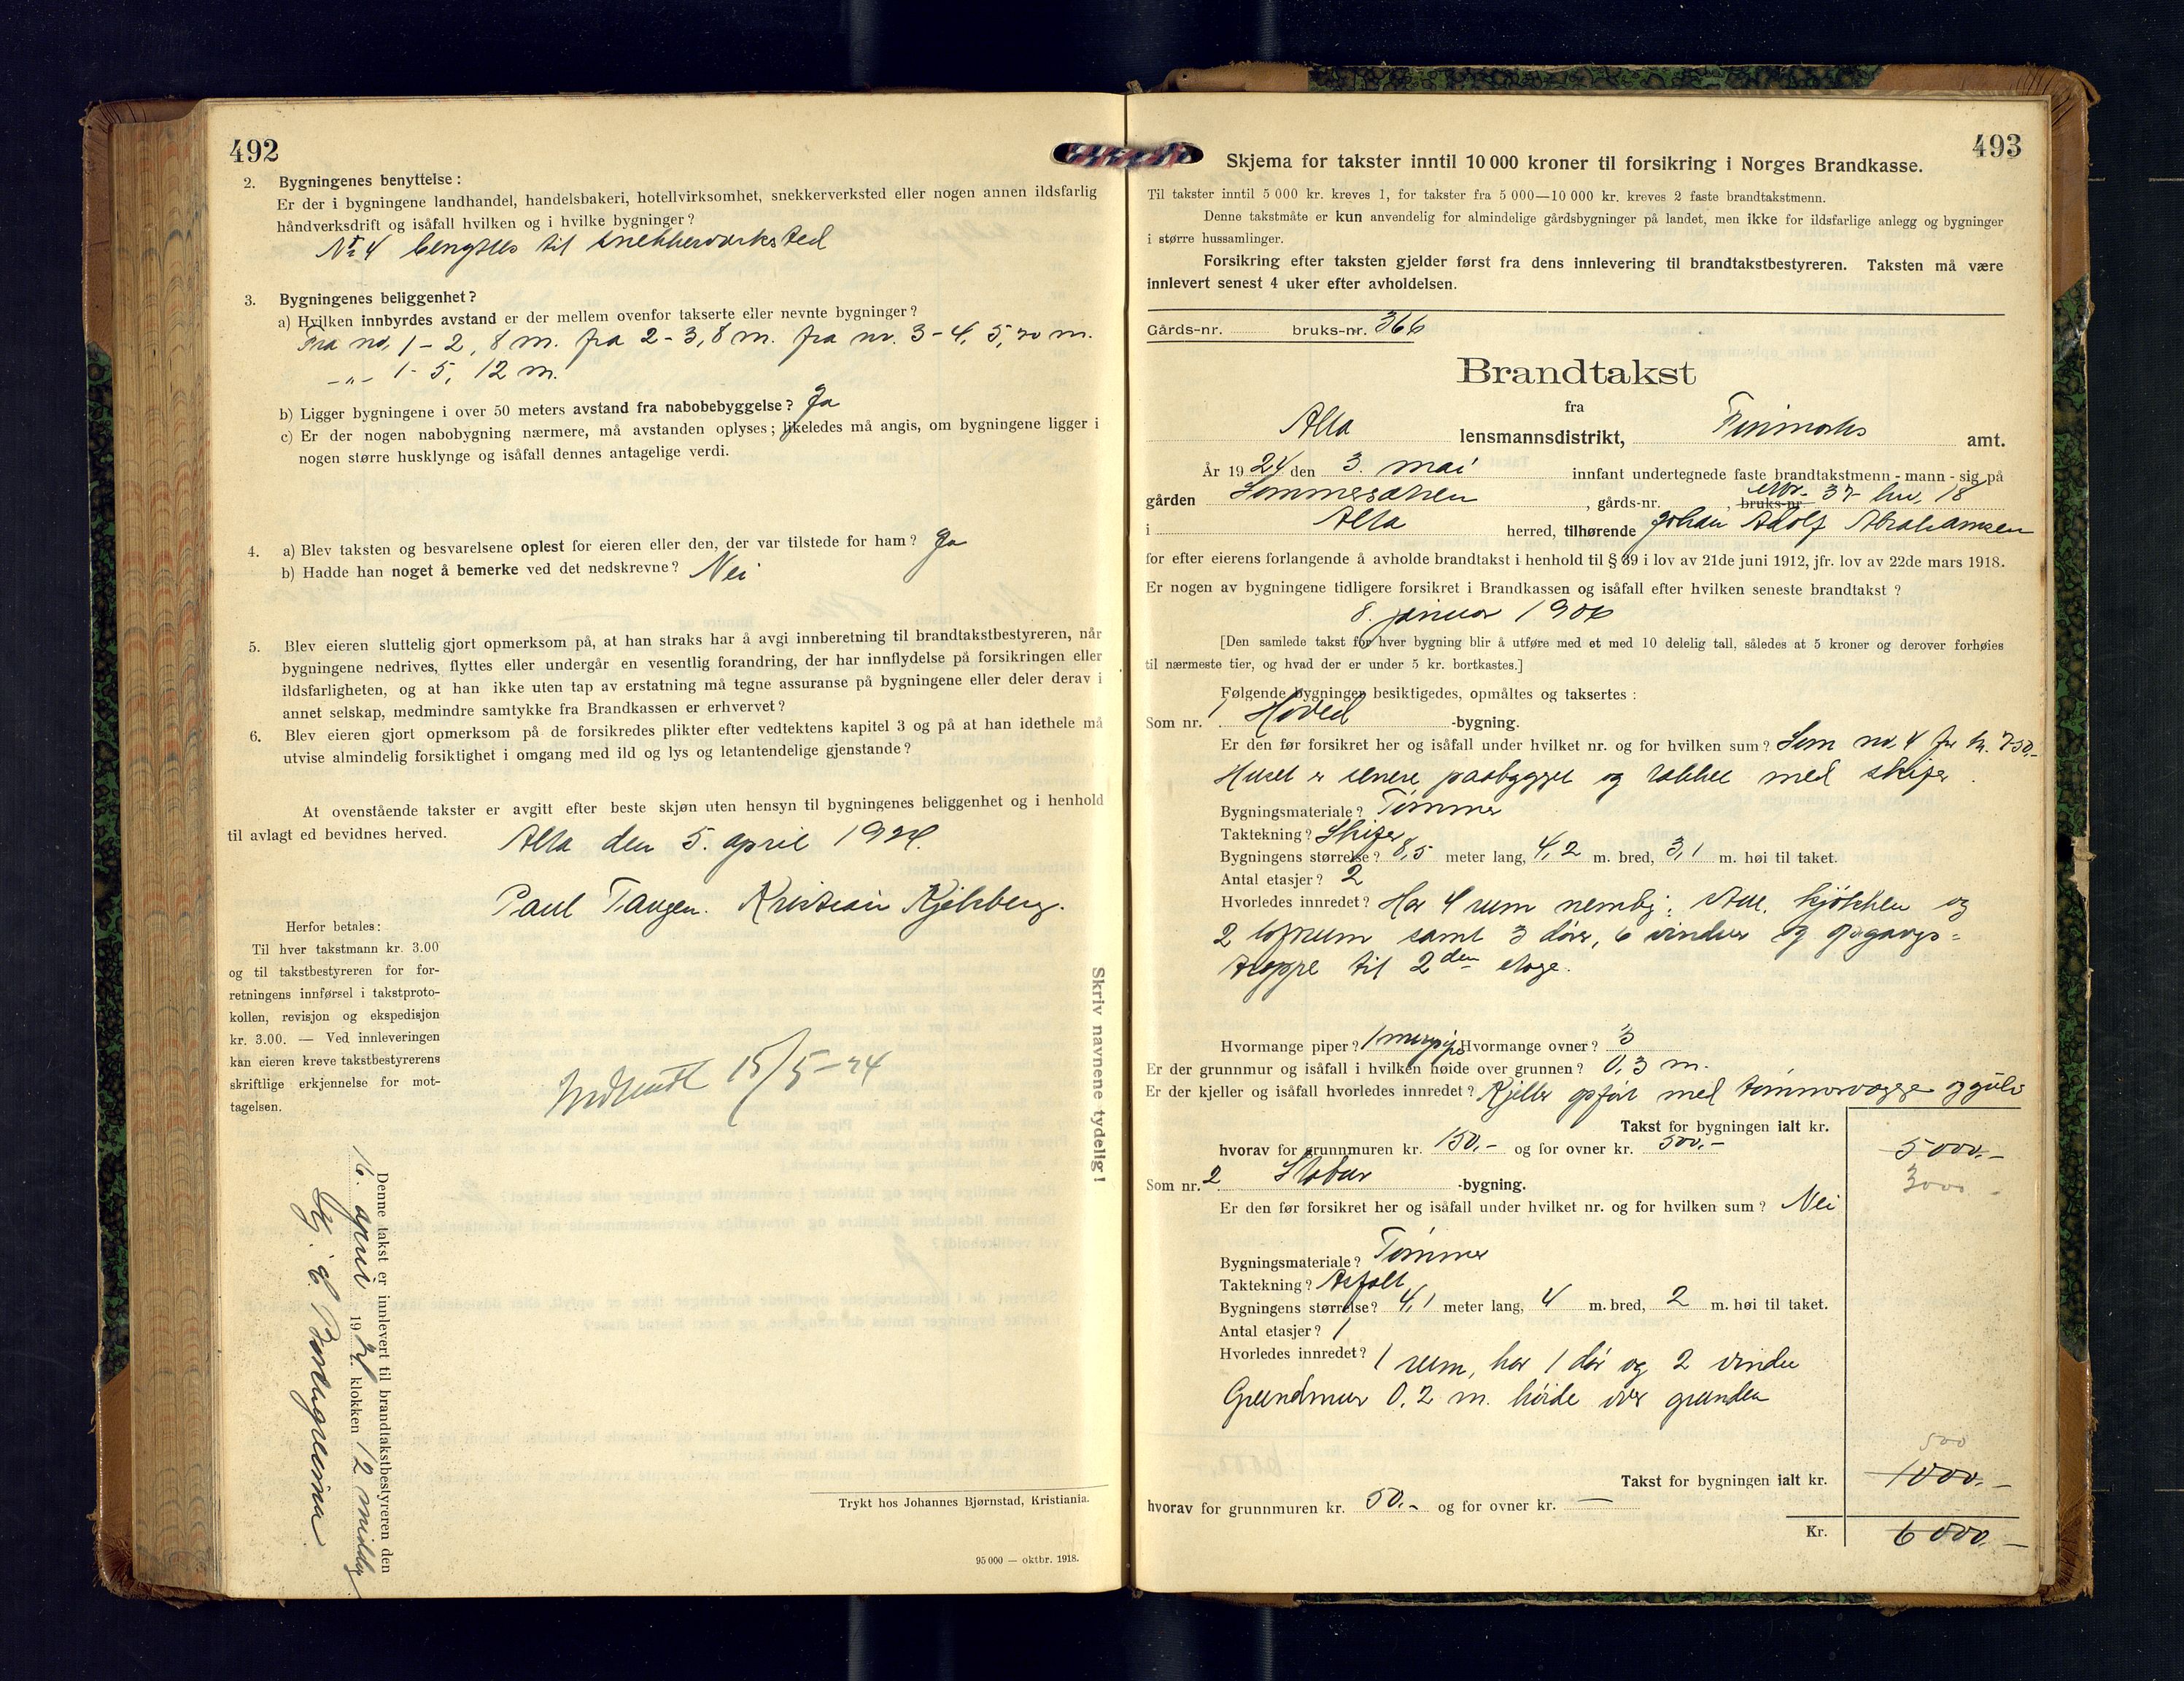 492
2. Bygningenes benyttelse:
Er der i bygningene landhandel, handelsbakeri, hotellvirksomhet, snekkerverksted eller nogen annen ildsfarlig
håndverksdrift og isåfall hvilken og i hvilke bygninger?
No 4 benyttes til snekkerverksted
3. Bygningenes beliggenhet?
a) Hvilken innbyrdes avstand er der mellem ovenfor takserte eller nevnte bygninger?
Fra no, 1 - 2, 8 m. fra 2 - 3, 8 m. fra nr. 3 - 4, 5,70 m.
-"- 1 - 5, 12 m.
b) Ligger bygningene i over 50 meters avstand fra nabobebyggelse? Ja
c) Er der nogen nabobygning nærmere, må avstanden oplyses; likeledes må angis, om bygningene ligger i
nogen større husklynge og isåfall dennes antagelige verdi.
4. a) Blev taksten og besvarelsene oplest for eieren eller den, der var tilstede for ham? Ja
b) Hadde han noget å bemerke ved det nedskrevne? Nei
5. Blev eieren sluttelig gjort opmerksom på, at han straks har å avgi innberetning til brandtakstbestyreren, når
bygningene nedrives, flyttes eller undergår en vesentlig forandring, der har innflydelse på forsikringen eller
ildsfarligheten, og at han ikke uten tap av erstatning må tegne assuranse på bygningene eller deler derav i
annet selskap, medmindre samtykke fra Brandkassen er erhvervet?
6. Blev eieren gjort opmerksom på de forsikredes plikter efter vedtektens kapitel 3 og på at han idethele må
utvise almindelig forsiktighet i omgang med ild og lys og letantendelige gjenstande?
At ovenstående takster er avgitt efter beste skjøn uten hensyn til bygningenes beliggenhet og i henhold
til avlagt ed bevidnes herved.
Alta den 5. april 1924.
Paul Tangen. Kristian Kjelsberg.
Herfor betales:
Til hver takstmann kr. 3.00
og til takstbestyreren for for-
retningens innførsel i takstproto-
kollen, revisjon og ekspedisjon
kr. 3.00. — Ved innleveringen
kan eieren kreve takstbestyrerens
skriftlige erkjennelse for mot-
tagelsen.
Indsendt 15/5-24
Skriv navnene tydelig!
Denne takst er innlevert til brandtakstbestyreren den
16. april 1924 klokken 12 middag
Trykt hos Johannes Bjørnstad, Kristiania.
95 000 — oktbr. 1918.
493
Skjema for takster inntil 10 000 kroner til forsikring i Norges Brandkasse.
Til takster inntil 5 000 kr. kreves 1, for takster fra 5 000—10 000 kr. kreves 2 faste brandtakstmenn.
Denne takstmåte er kun anvendelig for almindelige gårdsbygninger på landet, men ikke for ildsfarlige anlegg og bygninger
i større hussamlinger.
Forsikring efter taksten gjelder først fra dens innlevering til brandtakstbestyreren. Taksten må være
innlevert senest 4 uker efter avholdelsen.
Gårds-nr. bruks-nr. 366
Brandtakst
fra
Alta lensmannsdistrikt, Finmarks amt.
År 1924 den 3. mai innfant undertegnede faste brandtakstmenn - mann - sig på
gården , gårds-nr. , bruks-nr. 37 lnr. 18
i Alta herred, tilhørende Johan Adolf Abrahamsen
for efter eierens forlangende å avholde brandtakst i henhold til § 39 i lov av 21de juni 1912, jfr. lov av 22de mars 1918.
Er nogen av bygningene tidligere forsikret i Brandkassen og isåfall efter hvilken seneste brandtakst?
8. januar 1906
[Den samlede takst for hver bygning blir å utføre med et med 10 delelig tall, således at 5 kroner og derover forhøies
til nærmeste tier, og hvad der er under 5 kr. bortkastes.]
Følgende bygninger besiktigedes, opmåltes og taksertes:
Som nr. 1 Hoved -bygning.
Er den før forsikret her og isåfall under hvilket nr. og for hvilken sum? Som no. 4 for kr. 750,-
Huset er senere paabygget og takket med skifer.
Bygningsmateriale? Tømmer
Taktekning? Skifer
Bygningens størrelse? 8,5 meter lang, 4,2 m. bred, 3,1 m. høi til taket.
Antal etasjer? 2
Hvorledes innredet? Har 4 rum nemlig: stue, kjøkken og
2 loftrum samt 3 dører, 6 vinduer og opgangs-
trappe til 2den etage.
Hvormange piper? 1 murpipe Hvormange ovner? 3
Er der grunnmur og isåfall i hvilken høide over grunnen? 0,3 m.
Er der kjeller og isåfall hvorledes innredet? Kjeller opført med tømmervægge og gulv
Takst for bygningen ialt kr. 5000.-
hvorav for grunnmuren kr. 150.- og for ovner kr. 500.-
3000 -
Som nr. 2 Stabur -bygning.
Er den før forsikret her og isåfall under hvilket nr. og for hvilken sum? Nei
Bygningsmateriale? Tømmer
Taktekning? Asfalt
Bygningens størrelse? 4,1 meter lang, 4 m. bred, 2 m. høi til taket.
Antal etasjer? 1
Hvorledes innredet? 1 rum, har 1 dør og 2 vindu
Grundmur 0,2 m. høide over grunden
500
Takst for bygningen ialt kr. 1000.-
hvorav for grunnmuren kr. 50.- og for ovner kr. —
Kr. 6000.-